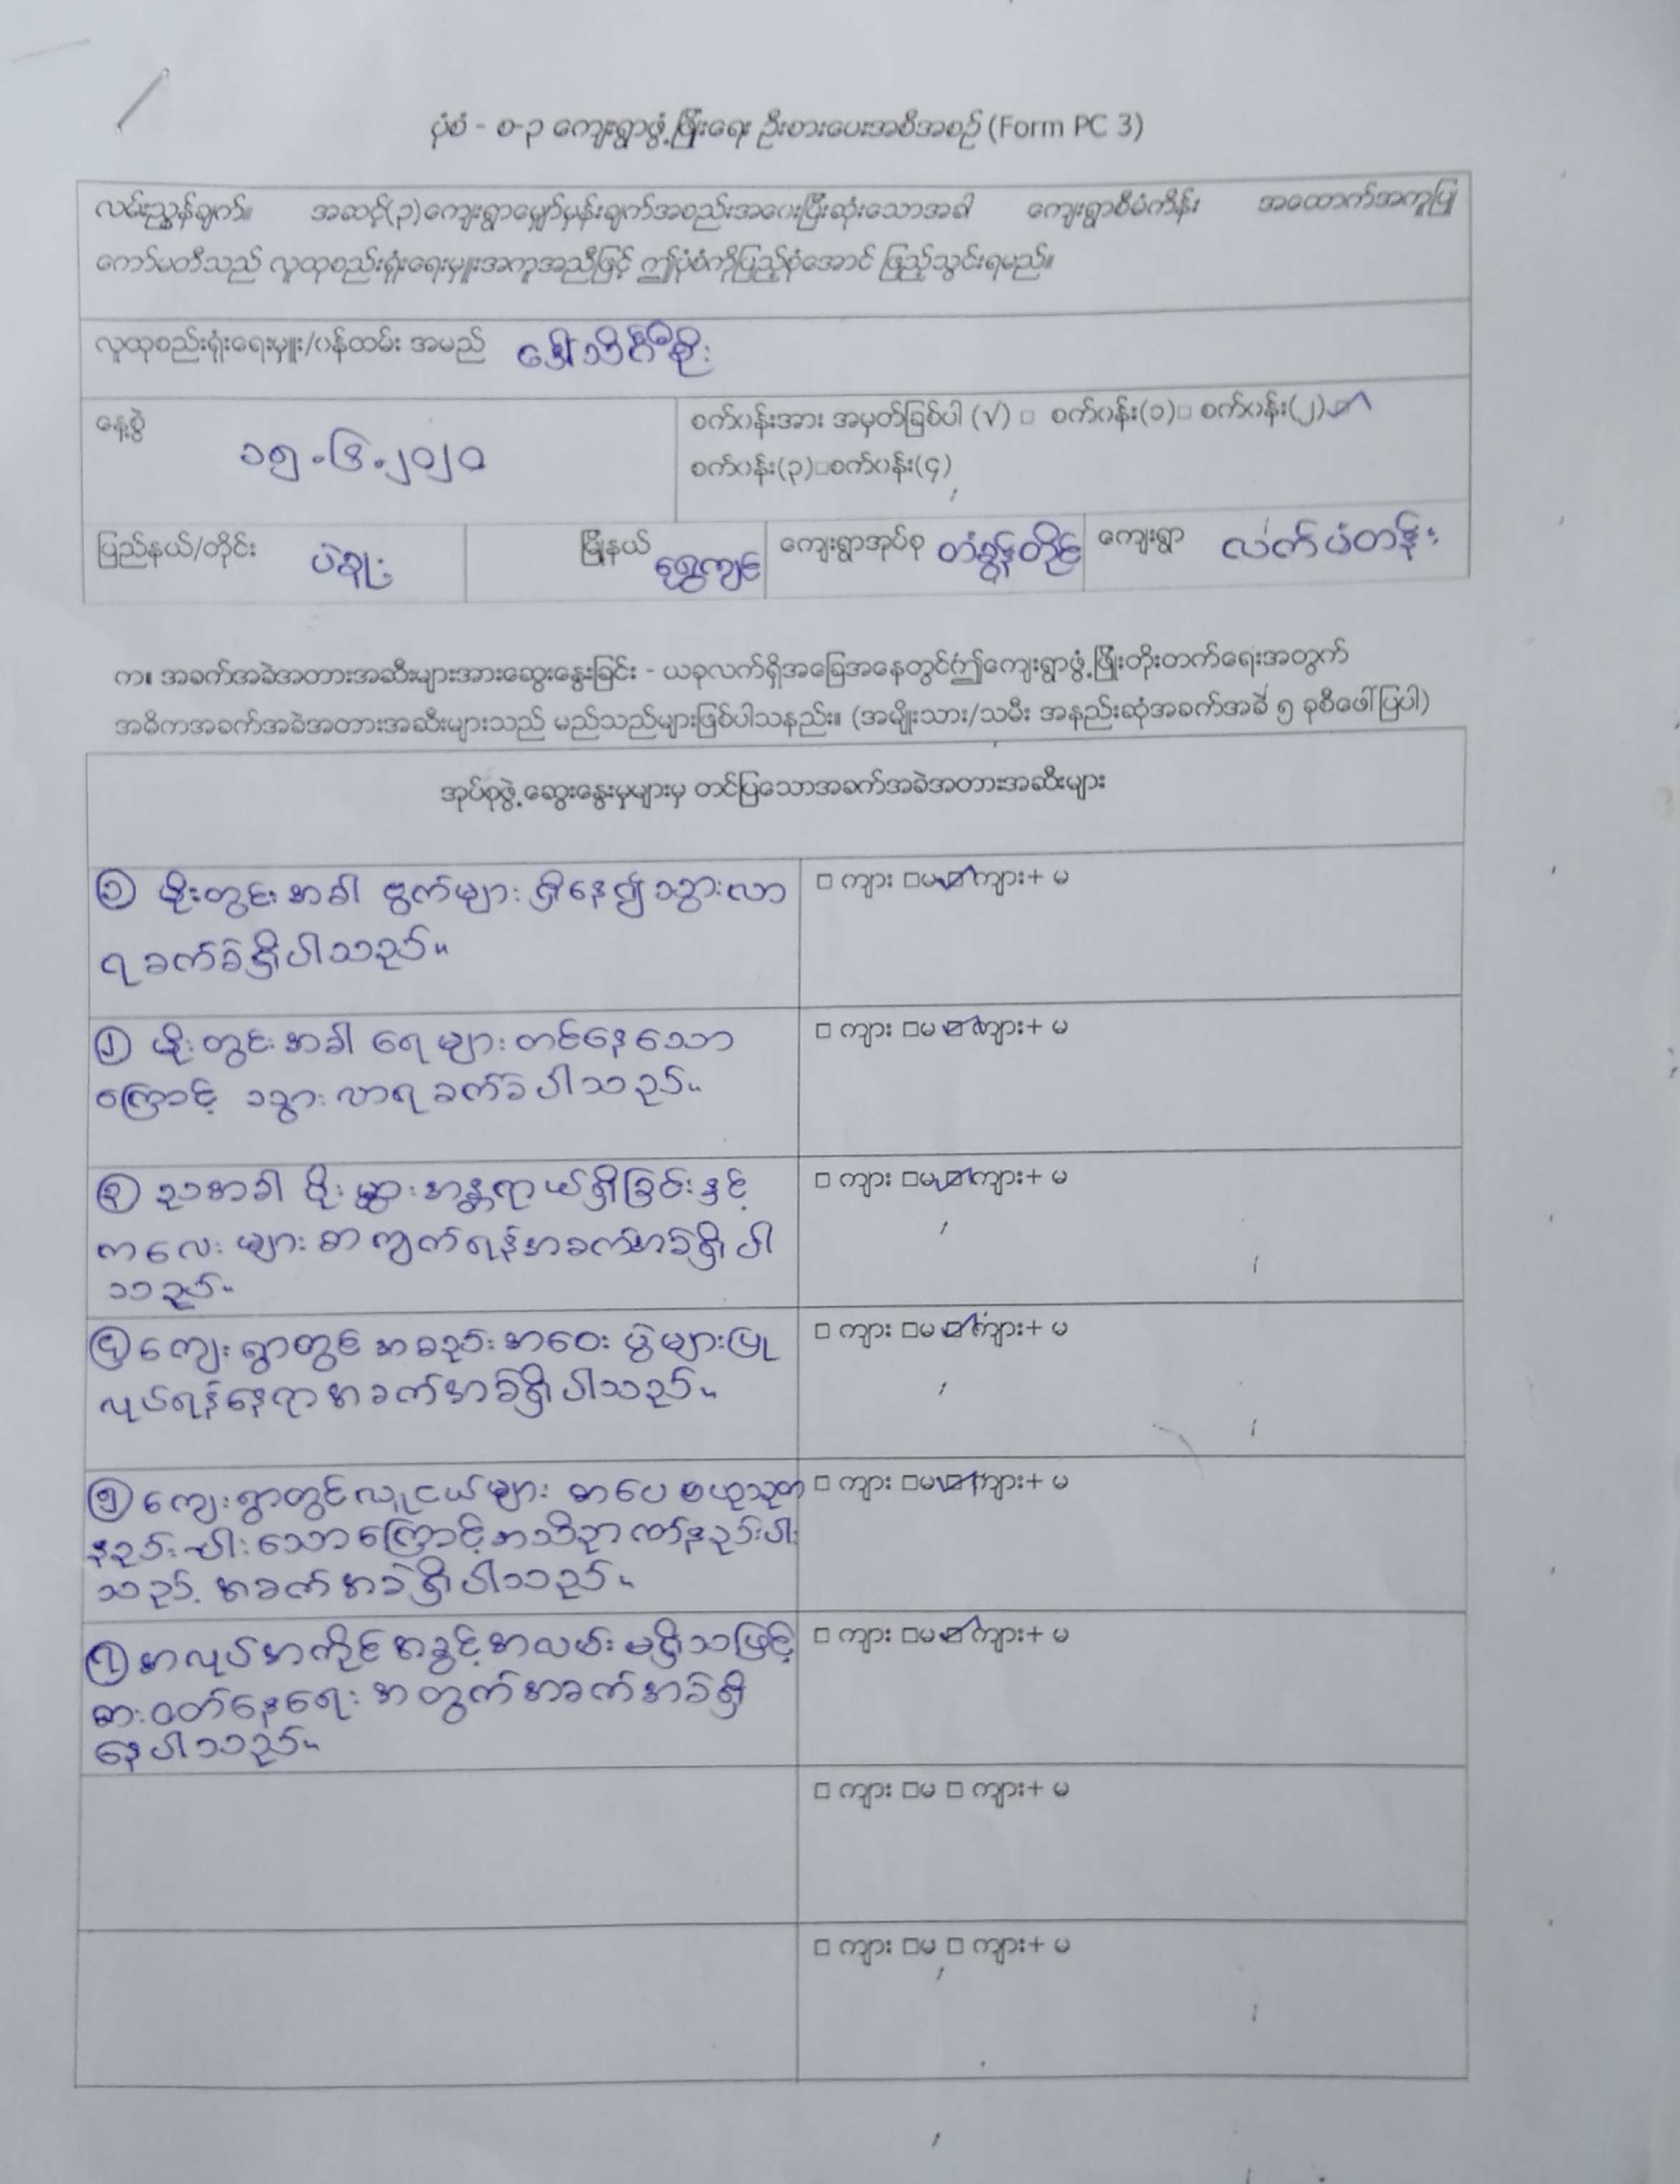 ပုံစံ - စ-၃ ကျေးရွာဖွံ့ဖြိုးရေး ဦးစားပေးအစီအစဉ် (Form PC 3)
လမ်းညွှန်ချက်။ အဆင့်(၃)ကျေးရွာမျှော်မှန်းချက်အစည်းအဝေးပြီးဆုံးသောအခါ ကျေးရွာစီမံကိန်း အထောက်အကူပြု
ကော်မတီသည် လူထုစည်းရုံးရေးမှူးအကူအညီဖြင့် ဤပုံစံကိုပြည့်စုံအောင် ဖြည့်သွင်းရမည်။
လူထုစည်းရုံးရေးမှူး/ဝန်ထမ်း အမည် ဒေါ်သိင်္ဂီစိုး
နေ့စွဲ ၁၅.၆.၂၀၂၀
စက်ဝန်းအား အမှတ်ခြစ်ပါ (√) □ စက်ဝန်း(၁)□ စက်ဝန်း(၂)☑
စက်ဝန်း(၃)□စက်ဝန်း(၄)
ပြည်နယ်/တိုင်း ပဲခူး မြို့နယ် ရွှေကျင် ကျေးရွာအုပ်စု တံခွန်တိုင် ကျေးရွာ လက်ပံတန်း
က။ အခက်အခဲအတားအဆီးများအားဆွေးနွေးခြင်း - ယခုလက်ရှိအခြေအနေတွင်ဤကျေးရွာဖွံ့ဖြိုးတိုးတက်ရေးအတွက်
အဓိကအခက်အခဲအတားအဆီးများသည် မည်သည်များဖြစ်ပါသနည်း။ (အမျိုးသား/သမီး အနည်းဆုံအခက်အခဲ ၅ ခုစီဖေါ်ပြပါ)
အုပ်စုဖွဲ့ဆွေးနွေးမှုများမှ တင်ပြသောအခက်အခဲအတားအဆီးများ
၁ မိုးတွင်းအခါ ဗွက်များရှိနေ၍ သွားလာ □ ကျား □မ ☑ ကျား+ မ
ရခက်ခဲရှိပါသည်။
၂ မိုးတွင်းအခါ ရေများတင်နေသော □ ကျား □မ ☑ ကျား+ မ
ကြောင့် သွားလာရခက်ခဲပါသည်။
၃ ညအခါ ပိုးမွှားအန္တရာယ်ရှိခြင်းနှင့် □ ကျား □မ ☑ ကျား+ မ
ကလေးများစာကျက်ရန်အခက်အခဲရှိပါ
သည်။
၄ ကျေးရွာတွင်အစည်းအဝေးပွဲများပြု □ ကျား □မ ☑ ကျား+ မ
လုပ်ရန်နေရာအခက်အခဲရှိပါသည်။
၅ ကျေးရွာတွင်လူငယ်များ စာပေဗဟုသုတ □ ကျား □မ ☑ ကျား+ မ
နည်းပါးသောကြောင့်အသိဉာဏ်နည်းပါး
သည့်အခက်အခဲရှိပါသည်။
၆ အလုပ်အကိုင်အခွင့်အလမ်းမရှိသဖြင့် □ ကျား □မ ☑ ကျား+ မ
စားဝတ်နေရေးအတွက်အခက်အခဲရှိ
နေပါသည်။
□ ကျား □မ □ ကျား+ မ
□ ကျား □မ □ ကျား+ မ